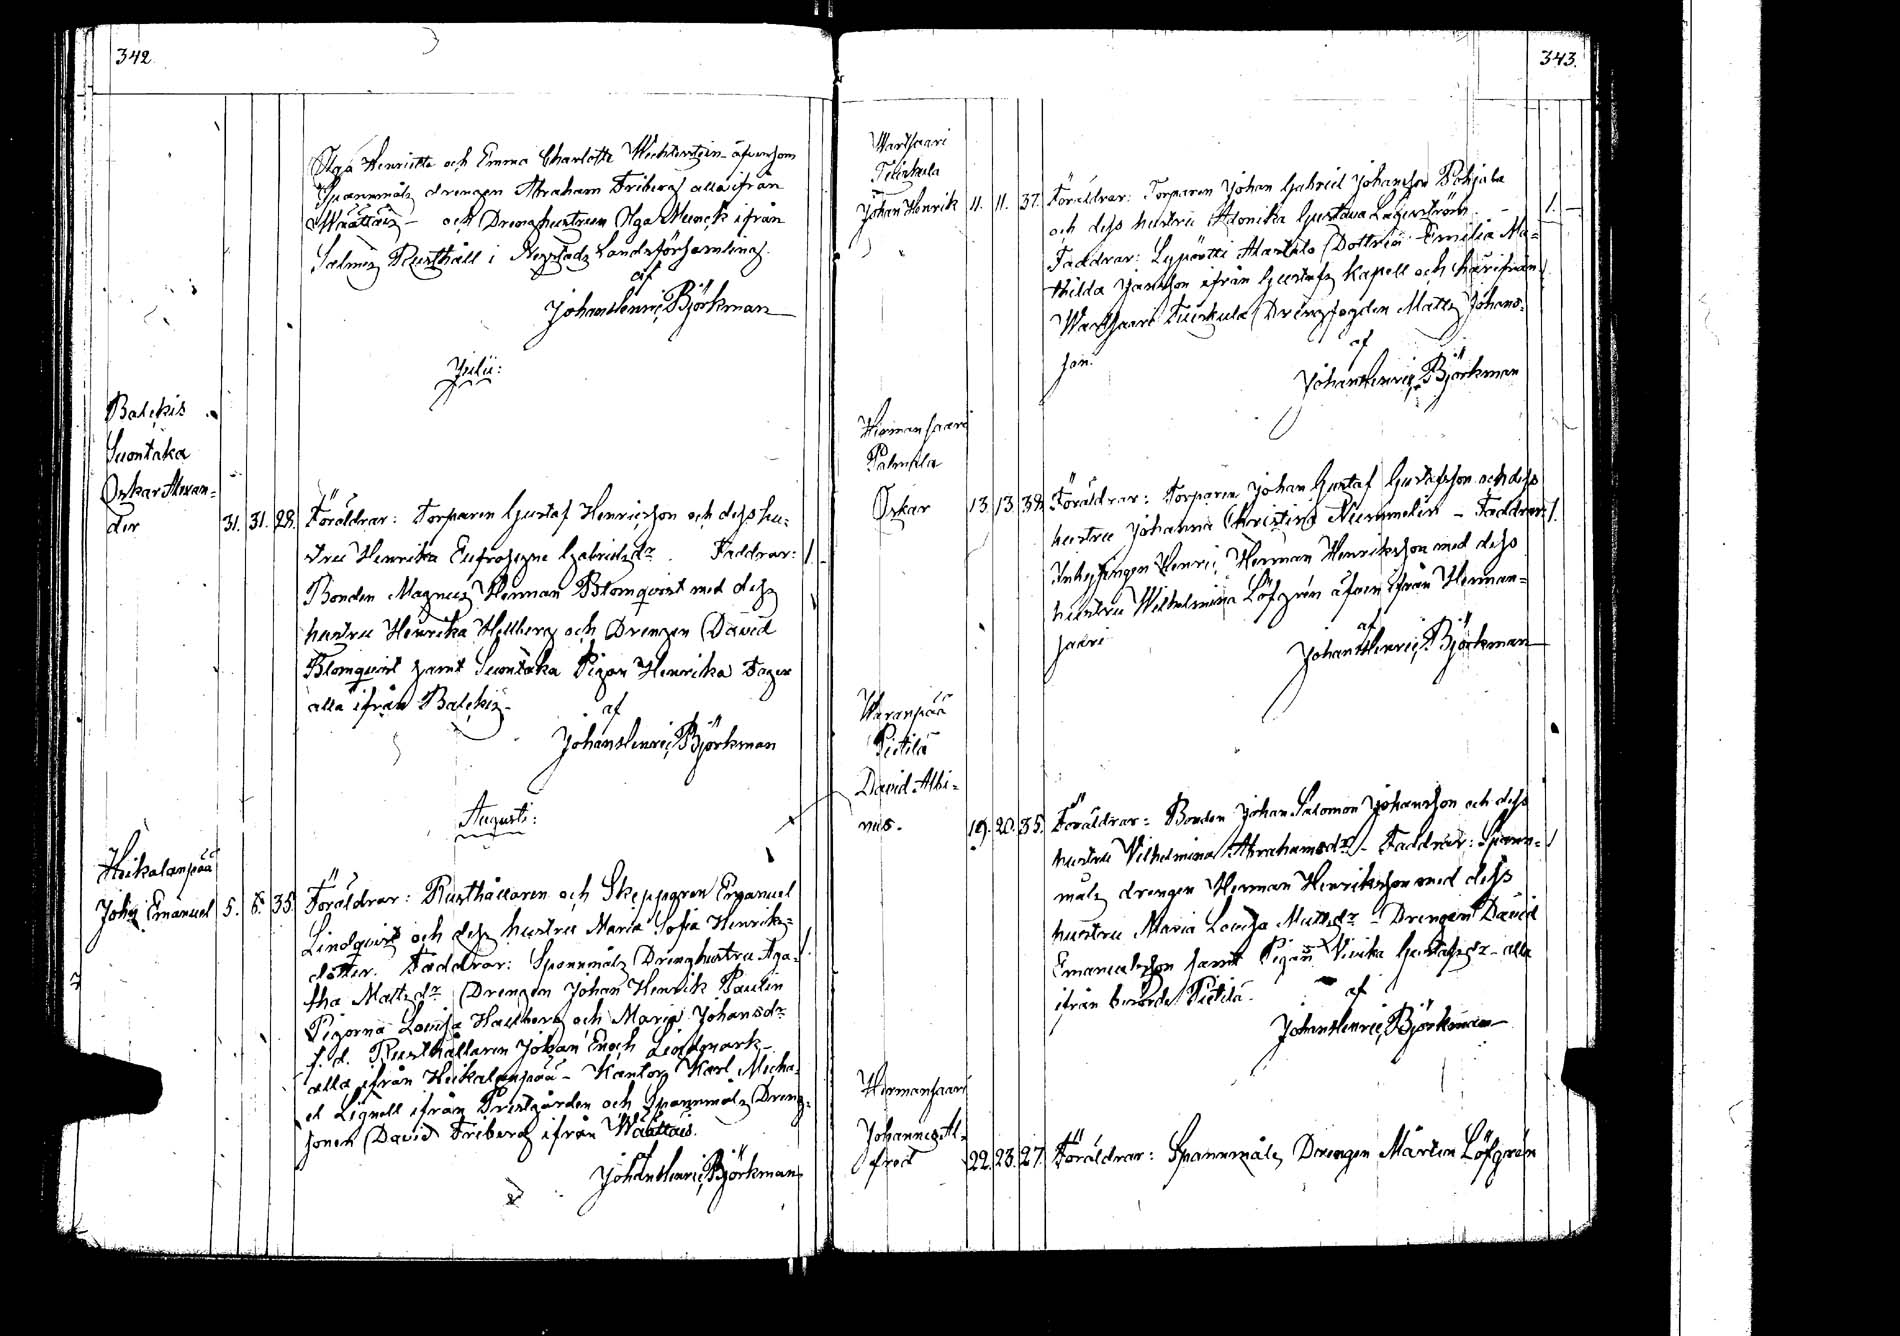 342.
Olga Henriette och Emma Charlotte Wechterstein äfvensom
Spannmåls drengen Abraham Friberg alla ifrån
Wäättäis – och Drenghustrun Olga Munck ifrån
Salmis Rusthåll i Nystads Landsförsamling.
af
Johan Henric Björkman
Julii:
Balckis
Suontaka
Oskar Alexan=
der 31. 31. 28. Föräldrar: Torparen Gustaf Henricsson och dess hu=
stru Henrika Eufrosyne Gabrielsdr. Faddrar: 1.
Bonden Magnus Herman Blomqvist med dess
hustru Henrika Hellberg och Drengen David
Blomqvist samt Suontaka Pigan Henrika Fager
alla ifrån Balckis.
af
Johan Henric Björkman
Augusti:
Heikalanpää
John Emanuel 5. 6. 35. Föräldrar: Rusthållaren och Skepparen Emanuel
Lindqvist och dess hustru Maria Sofia Henriks=
dotter. Faddrar: Spannmåls Drenghustru Aga= 1.
tha Mattsdr Drengen Johan Henrik Paulin
Pigorna Lovisa Hallberg och Maria Johansdr
f. d. Rusthållaren Johan Enoch Lindmark –
alla ifrån Heikalanpää – Kantor Karl Micha=
el Lignell ifrån Prestgården och Spannmåls Dreng=
sonen David Friberg ifrån Wäättäis.
Johan Henric Björkman
343.
Wartsaari
Tuiskula
Johan Henrik 11. 11. 37. Föräldrar: Torparen Johan Gabriel Johansson Pohjala
och dess hustru Adonika Gustava Lagerström. – 1.
Faddrar: Lypörtti Alastalo Dottren Emilia Ma=
thilda Jansson ifrån Gustafs Kapell och härifrån
Wartsaari Tuiskula Drengfogden Matts Johans=
son.
af
Johan Henric Björkman
Hermansaari
Palmula
Oskar 13. 13. 38. Föräldrar: Torparen Johan Gustaf Gustafsson och dess
hustru Johanna Christina Nummelin – Faddrar: 1.
Inhysingen Henric Herman Henriksson med dess
hustru Wilhelmina Löfgrén äfven ifrån Herman=
saari
af
Johan Henric Björkman
Waranpää
Pietilä
David Albi=
nus. 19. 20. 35. Föräldrar: Bonden Johan Salomon Johansson och dess
hustru Vilhelmina Abrahamsdr – Faddrar: Spann= 1
måls drengen Herman Henriksson med dess
hustru Maria Lovisa Mattsdr – Drengen David
Emanuelsson samt Pigan Vivika Gustafsdr – alla
ifrån berörde Pietilä.
af
Johan Henric Björkman
Hermansaari
Johannes Al=
fred 22. 23. 27. Föräldrar: Spannmåls Drengen Mårten Löfgrén